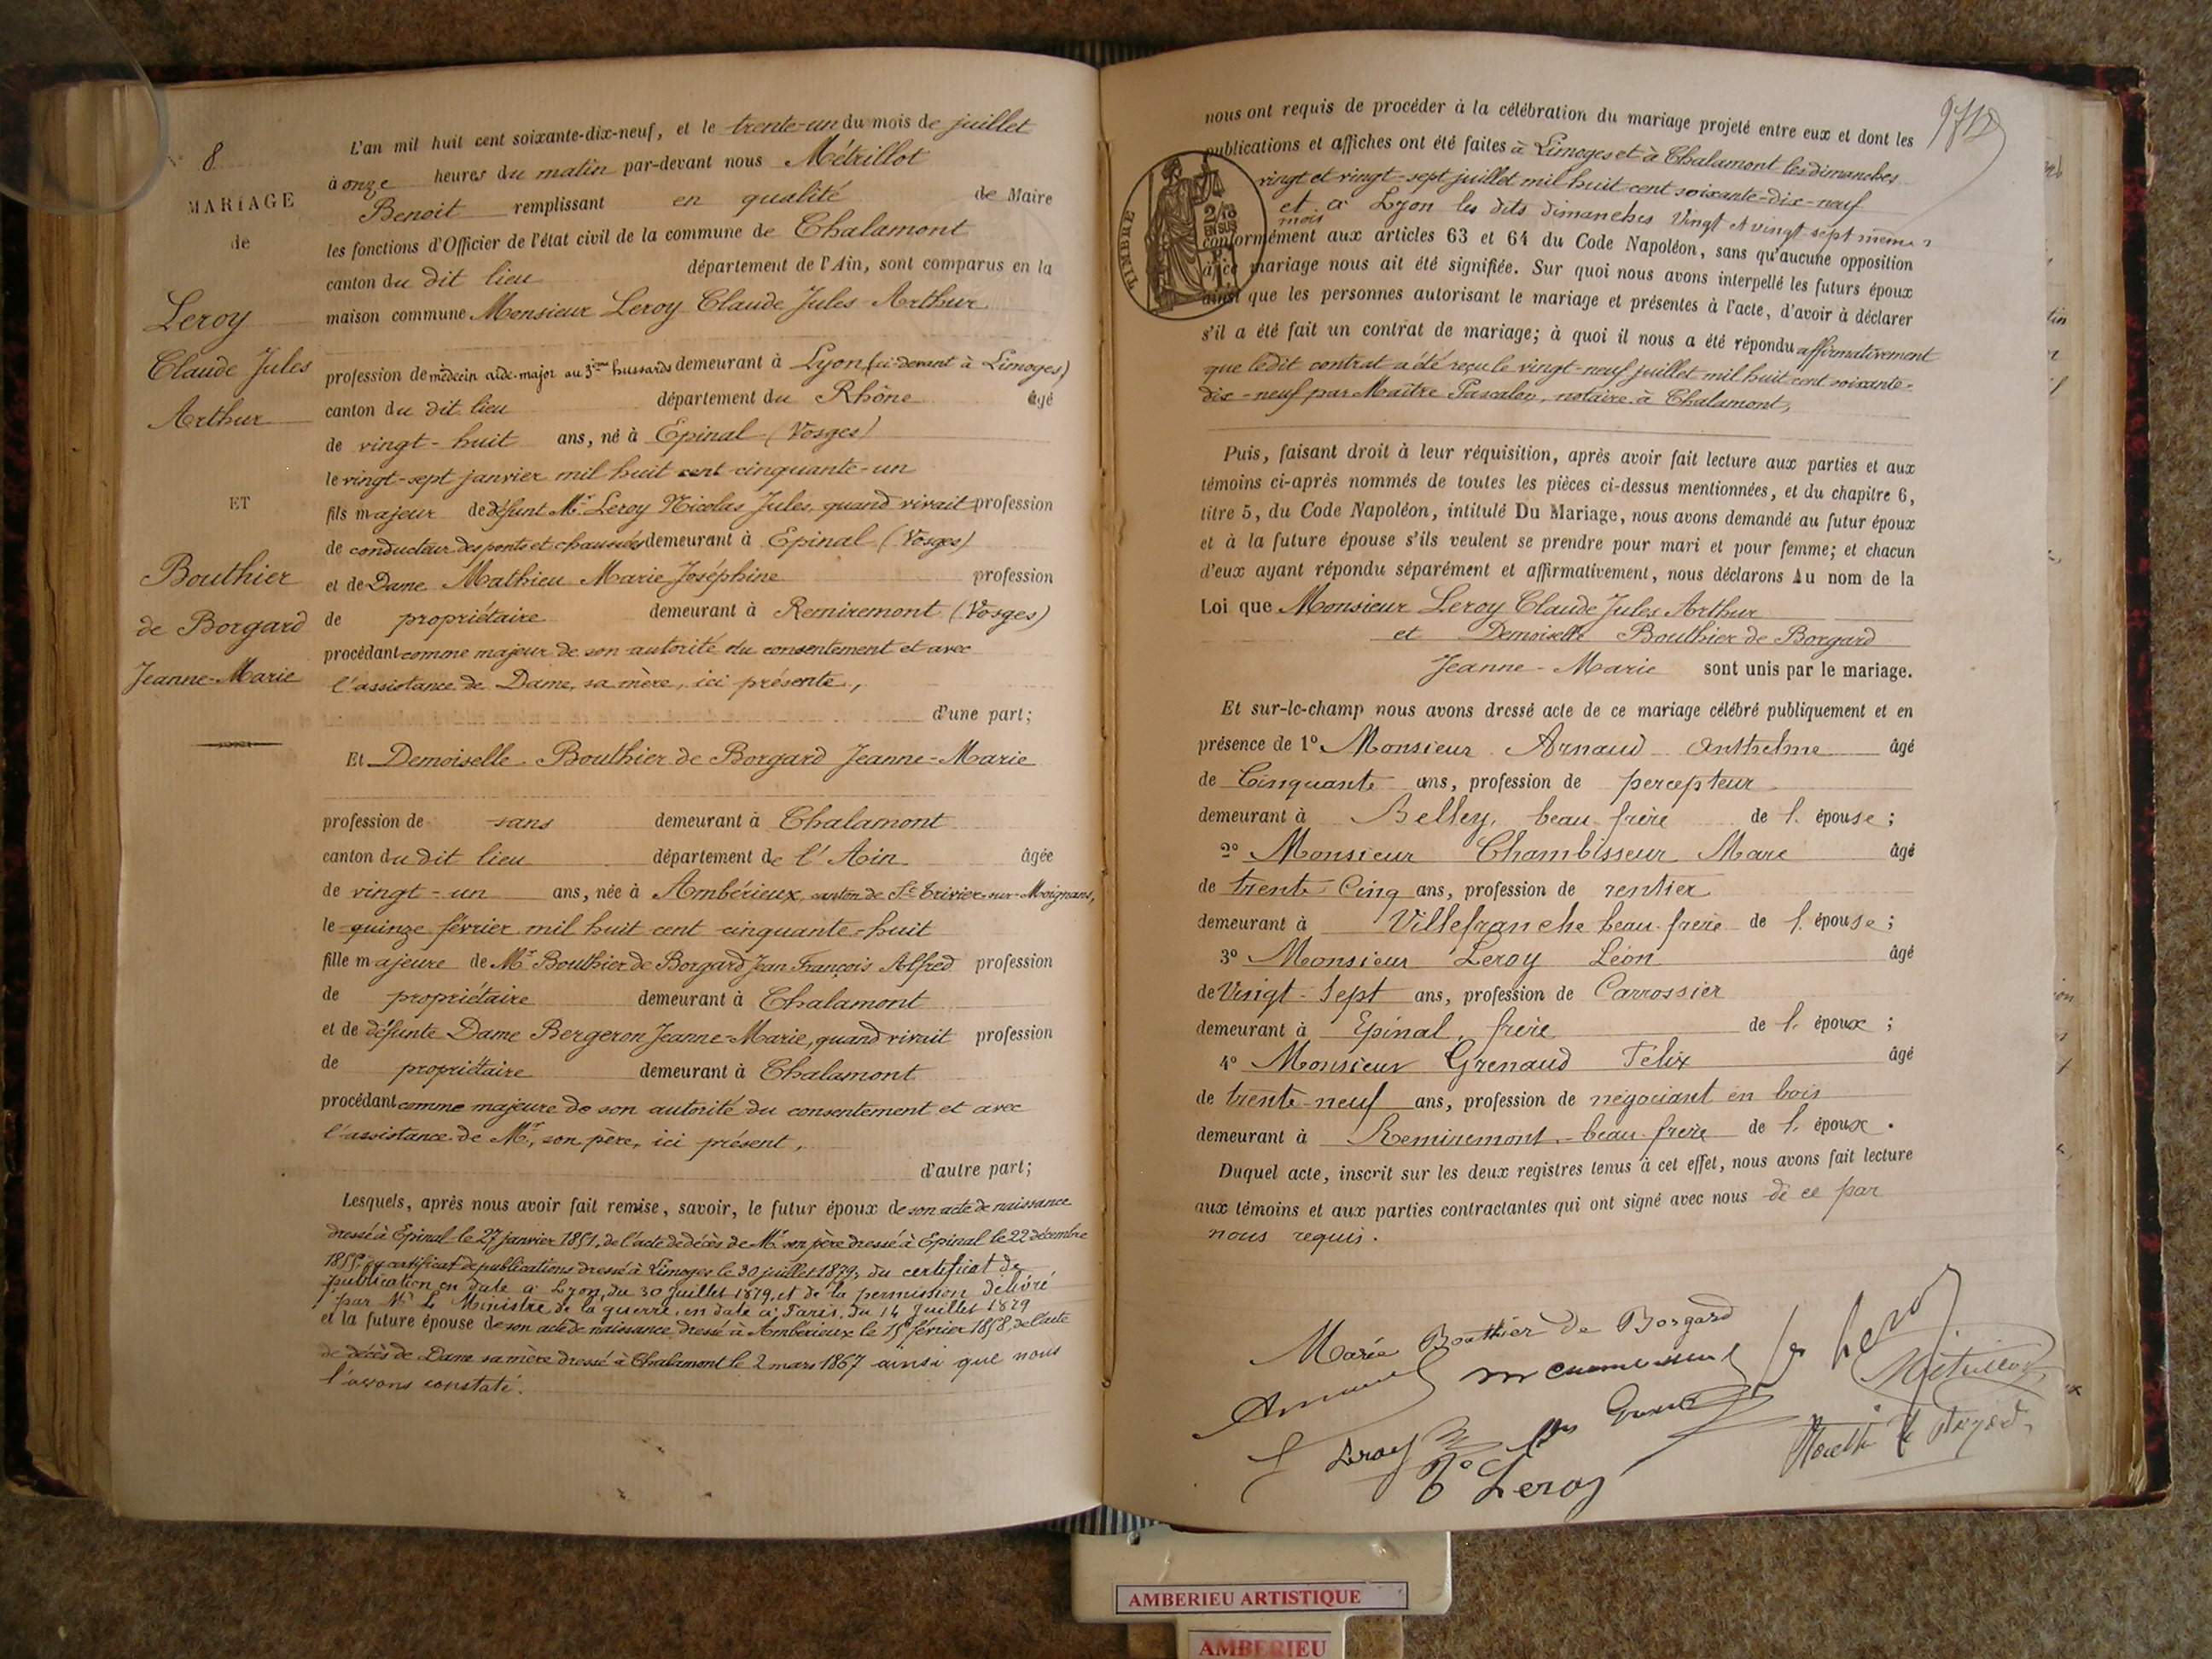 N° 8
MARIAGE
de
Leroy
Claude Jules
Arthur
ET
Bouthier
de Borgard
Jeanne-Marie
L'an mil huit cent soixante-dix-neuf, et le trente-un du mois de juillet
à onze heures du matin par-devant nous Métrillot
Benoit remplissant en qualité de Maire
les fonctions d'Officier de l'état civil de la commune de Chalamont
canton du dit lieu département de l'Ain, sont comparus en la
maison commune Monsieur Leroy Claude Jules Arthur
profession de médecin aide-major au 3ème hussards demeurant à Lyon (ci-devant à Limoges)
canton du dit lieu département du Rhône âgé
de vingt-huit ans, né à Epinal (Vosges)
le vingt-sept janvier mil huit cent cinquante-un
fils majeur de défunt Mr Leroy Nicolas Jules, quand vivait profession
de conducteur des ponts et chaussées demeurant à Epinal (Vosges)
et de Dame Mathieu Marie Joséphine profession
de propriétaire demeurant à Remiremont (Vosges)
procédant comme majeur de son autorité du consentement et avec
l'assistance de Dame, sa mère, ici présente,
d'une part;
Et Demoiselle Bouthier de Borgard Jeanne-Marie
profession de sans demeurant à Chalamont
canton du dit lieu département de l'Ain âgée
de vingt-un ans, née à Ambérieux, canton de St Trivier-sur-Moignans,
le quinze février mil huit cent cinquante-huit
fille majeure de Mr Bouthier de Borgard Jean François Alfred profession
de propriétaire demeurant à Chalamont
et de défunte Dame Bergeron Jeanne-Marie, quand vivait profession
de propriétaire demeurant à Chalamont
procédant comme majeure de son autorité du consentement et avec
l'assistance de Mr, son père, ici présent,
d'autre part;
Lesquels, après nous avoir fait remise, savoir, le futur époux de son acte de naissance
dressé à Epinal le 27 janvier 1851, de l'acte de décès de Mr son père dressé à Epinal le 22 décembre
certificat de publications dressé à Limoges le 30 juillet 1879, du certificat de
publication en date à Lyon, du 30 Juillet 1879, et de la permission délivré
par Mr le Ministre de la guerre, en date à Paris, du 14 Juillet 1879
et la future épouse de son acte de naissance dressé à Ambérieux le 15 février 1858, de l'acte
de décès de Dame sa mère dressé à Chalamont le 2 mars 1867 ainsi que nous
l'avons constaté.
nous ont requis de procéder à la célébration du mariage projeté entre eux et dont les
publications et affiches ont été faites à Limoges et à Chalamont les dimanches
vingt et vingt-sept juillet mil huit cent soixante-dix-neuf
et à Lyon les dits dimanches Vingt et vingt sept même
mois
conformément aux articles 63 et 64 du Code Napoléon, sans qu'aucune opposition
à ce mariage nous ait été signifiée. Sur quoi nous avons interpellé les futurs époux
ainsi que les personnes autorisant le mariage et présentes à l'acte, d'avoir à déclarer
s'il a été fait un contrat de mariage; à quoi il nous a été répondu affirmativement
que ledit contrat a été reçu le vingt-neuf juillet mil huit cent soixante-
dix-neuf par Maître Pascalon, notaire à Chalamont,
TIMBRE
2/10
EN SUS
Puis, faisant droit à leur réquisition, après avoir fait lecture aux parties et aux
témoins ci-après nommés de toutes les pièces ci-dessus mentionnées, et du chapitre 6,
titre 5, du Code Napoléon, intitulé Du Mariage, nous avons demandé au futur époux
et à la future épouse s'ils veulent se prendre pour mari et pour femme; et chacun
d'eux ayant répondu séparément et affirmativement, nous déclarons Au nom de la
Loi que Monsieur Leroy Claude Jules Arthur
et Demoiselle Bouthier de Borgard
Jeanne-Marie sont unis par le mariage.
Et sur-le-champ nous avons dressé acte de ce mariage célébré publiquement et en
présence de 1° Monsieur Arnaud Anthelme âgé
de Cinquante ans, profession de percepteur
demeurant à Belley, beau-frère de l'épouse;
2° Monsieur Chambisseur Marc âgé
de trente Cinq ans, profession de rentier
demeurant à Villefranche beau-frère de l'épouse;
3° Monsieur Leroy Léon âgé
de Vingt-Sept ans, profession de Carrossier
demeurant à Epinal, frère de l'époux;
4° Monsieur Grenaud Felix âgé
de trente-neuf ans, profession de négociant en bois
demeurant à Remiremont, beau-frère de l'époux.
Duquel acte, inscrit sur les deux registres tenus à cet effet, nous avons fait lecture
aux témoins et aux parties contractantes qui ont signé avec nous de ce par
nous requis.
Marie Bouthier de Borgard
Leroy
Métrillot
Leroy
Leroy
AMBERIEU ARTISTIQUE
AMBERIEU